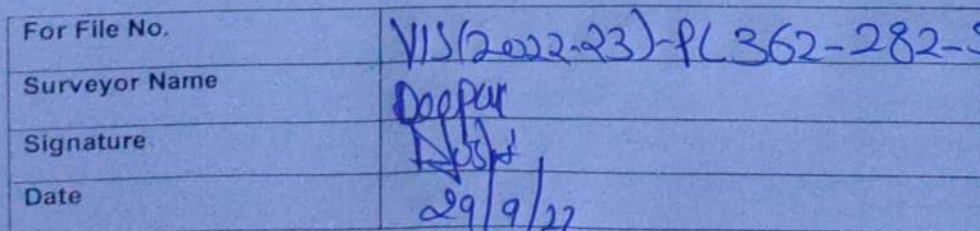 For File No. VIS(2022-23)-PL362-282-
Surveyor Name
Signature
Date 29/9/22